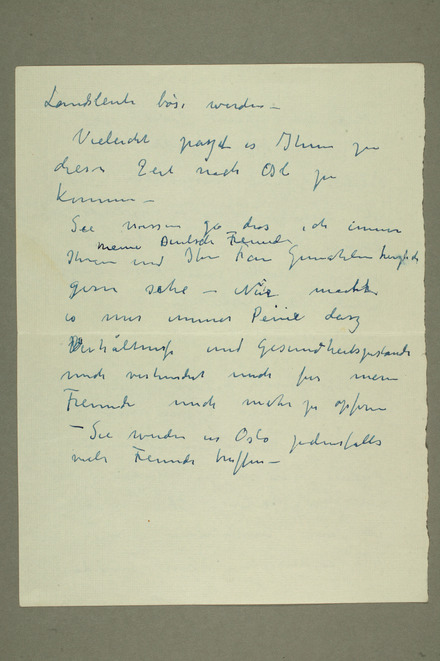 Landsleute böse werden –
Vieleicht passt es Ihnen zu
dieser Zeit nach Oslo zu
kommen –
Sie wissen ja dass ich immer
meine Deutsche Freunde
Ihnen und Ihre Frau Gemahlin herzlich
gern sehe – Nur macht
es mir immer Peine dass
Verhältnisse und Gesundheitszustande
mich verhindert mich für meine
Freunde mich mehr zu opfern
– Sie werden in Oslo jedenfalls
viele Freunde treffen –